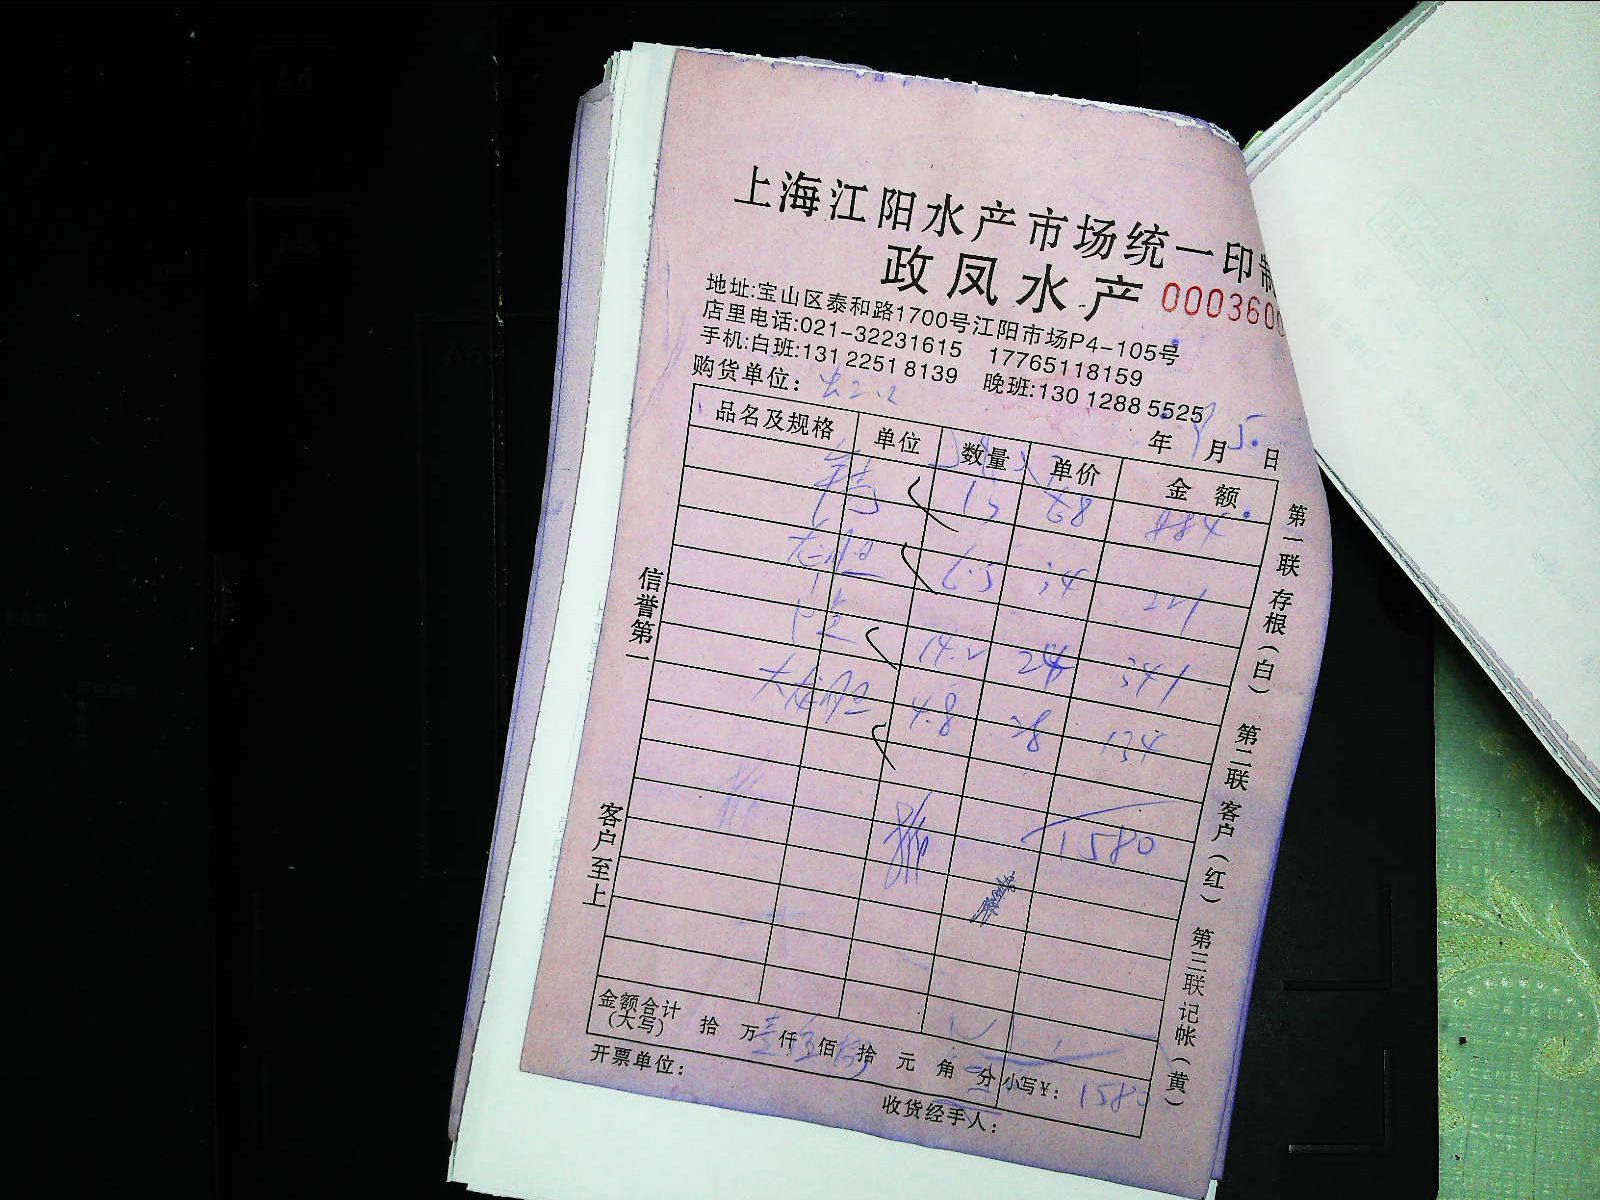 上海江阳水产市场统一印制
政凤水产 000360
地址:宝山区泰和路1700号江阳市场P4-105号
店里电话:021-32231615 17765118159
手机:白班:131 2251 8139 晚班:130 1288 5525
购货单位:
年 月 5 日
品名及规格 单位 数量 单价 金额
13 68 884
龙胆 6.5 34 221
14.2 24 341
大龙胆 4.8 28 134
1580
金额合计(大写) 拾 万 壹 仟 伍 佰 捌 拾 元 角 分 小写¥: 1580
开票单位:
收货经手人:
信誉第一
客户至上
第一联 存根(白) 第二联 客户(红) 第三联 记帐(黄)